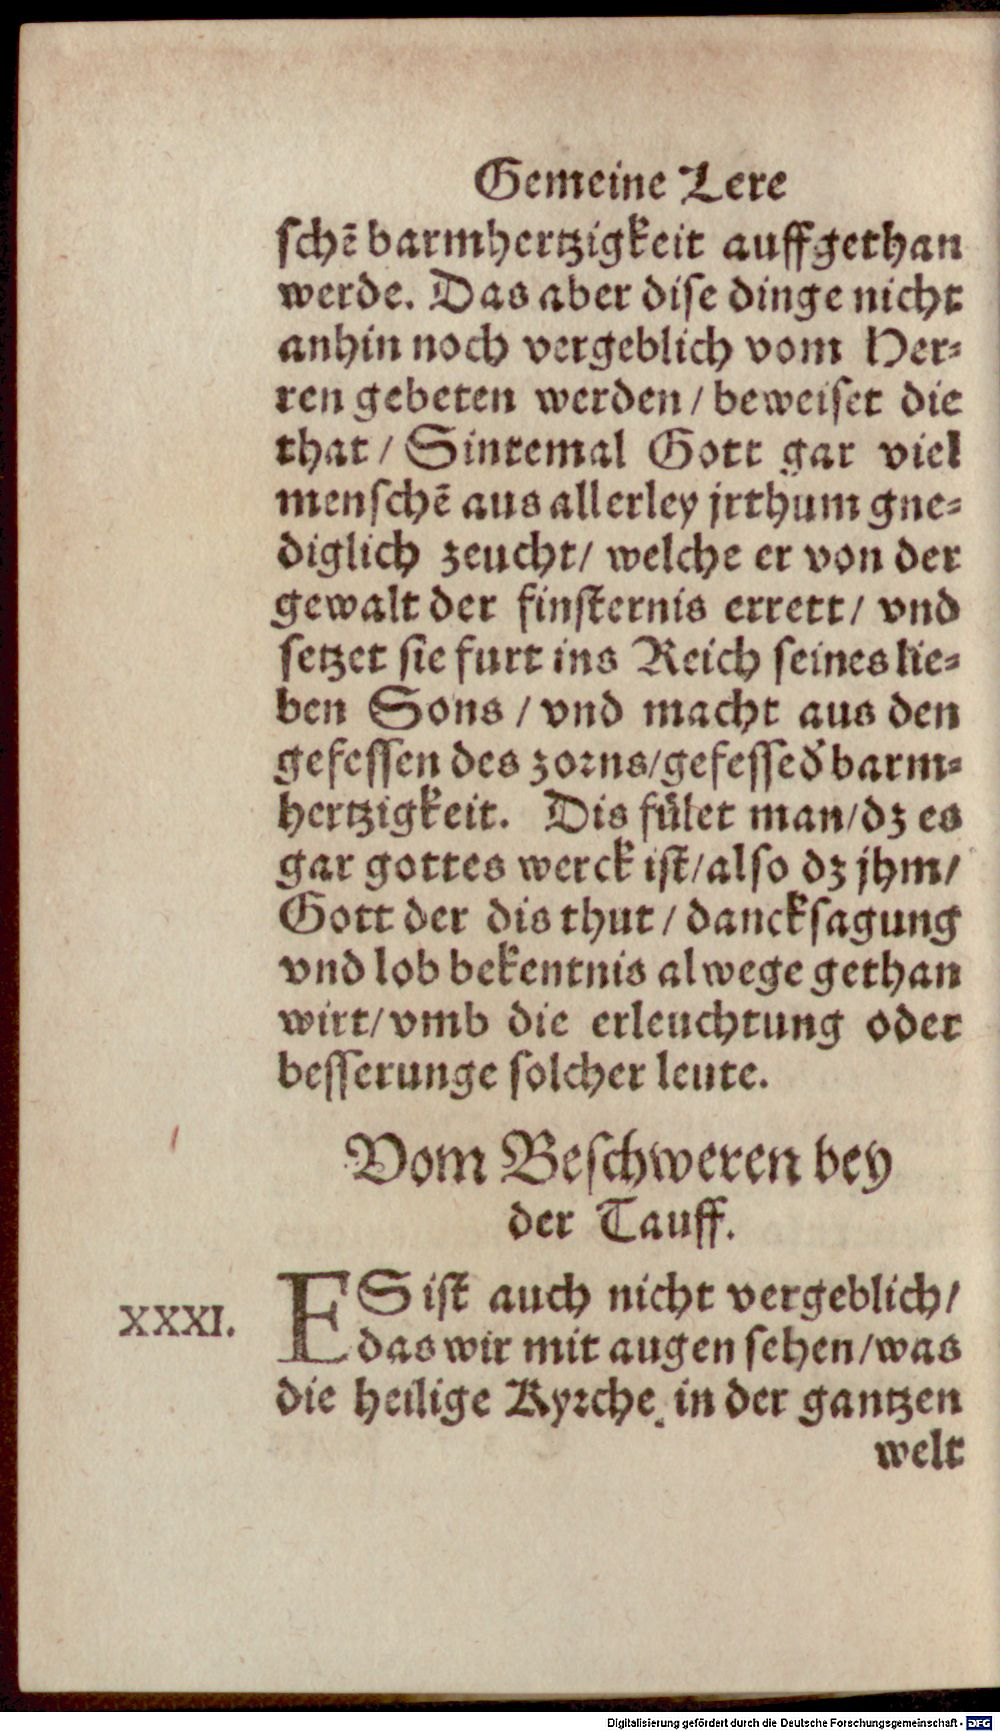 Gemeine Lere
schẽ barmhertzigkeit auffgethan
werde. Das aber dise dinge nicht
anhin noch vergeblich vom Her⸗
ren gebeten werden / beweiset die
that / Sintemal Gott gar viel
menschẽ aus allerley jrthum gne⸗
diglich zeucht / welche er von der
gewalt der finsternis errett / vnd
setzet sie furt ins Reich seines lie⸗
ben Sons / vnd macht aus den
gefessen des zorns / gefesse d̕ barm⸗
hertzigkeit. Dis fület man / dz es
gar gottes werck ist / also dz jhm /
Gott der dis thut / dancksagung
vnd lob bekentnis alwege gethan
wirt / vmb die erleuchtung oder
besserunge solcher leute.
Vom Beschweren bey
der Tauff.
XXXI. ES ist auch nicht vergeblich /
das wir mit augen sehen / was
die heilige Kyrche in der gantzen
welt
Digitalisierung gefördert durch die Deutsche Forschungsgemeinschaft - DFG